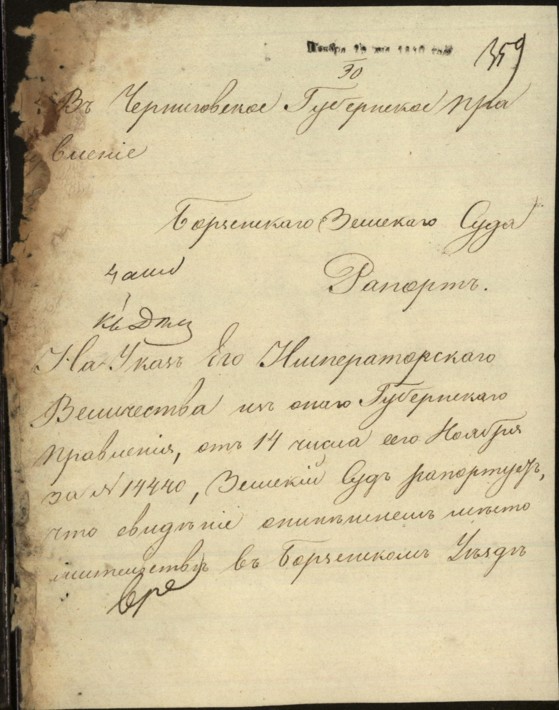 Декабря 1840 года
359
30
Въ Черниговское Губернское Пра
вленіе
Борзенскаго Земскаго Суда
Рапортъ.
къ Дѣлу
На Указъ Его Императорскаго
Величества изъ онаго Губернскаго
Правленія, отъ 14 числа сего Ноября
за N 14440, Земскій Судъ рапортуетъ,
что свидѣніе о нинѣшнемъ мѣсто
жительствѣ въ Борзенскомъ Уѣздѣ